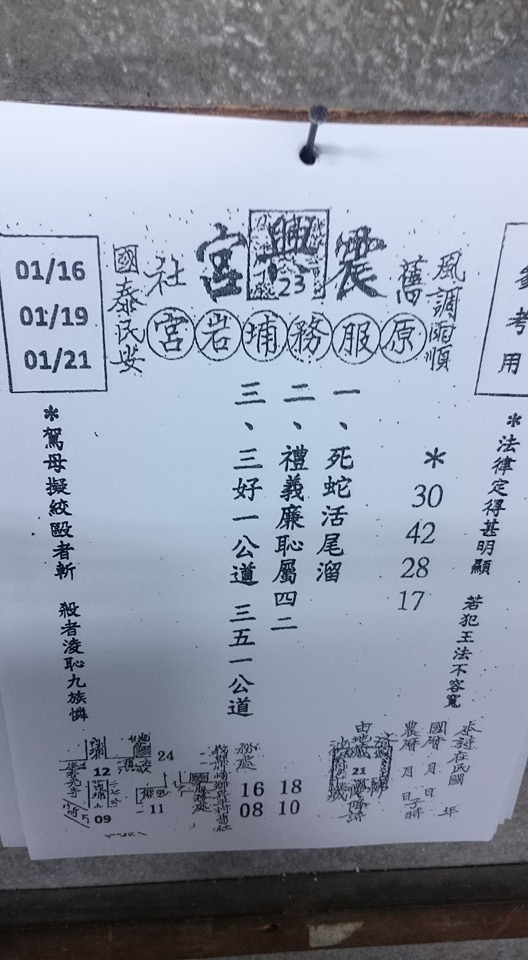 參考用
風調雨順
舊
震興宮
23
社
國泰民安
原服務埔岩宮
01/16
01/19
01/21
*法律定得甚明顯 若犯王法不容寬
*
30
42
28
17
一、死蛇活尾溜
二、禮義廉恥屬四二
三、三好一公道 三五一公道
*駕母擬絞毆者斬 殺者淩恥九族憐
本詩在民國 年
國曆 月 日
農曆 月 日子時
21
16 18
08 10
24
12
11
09